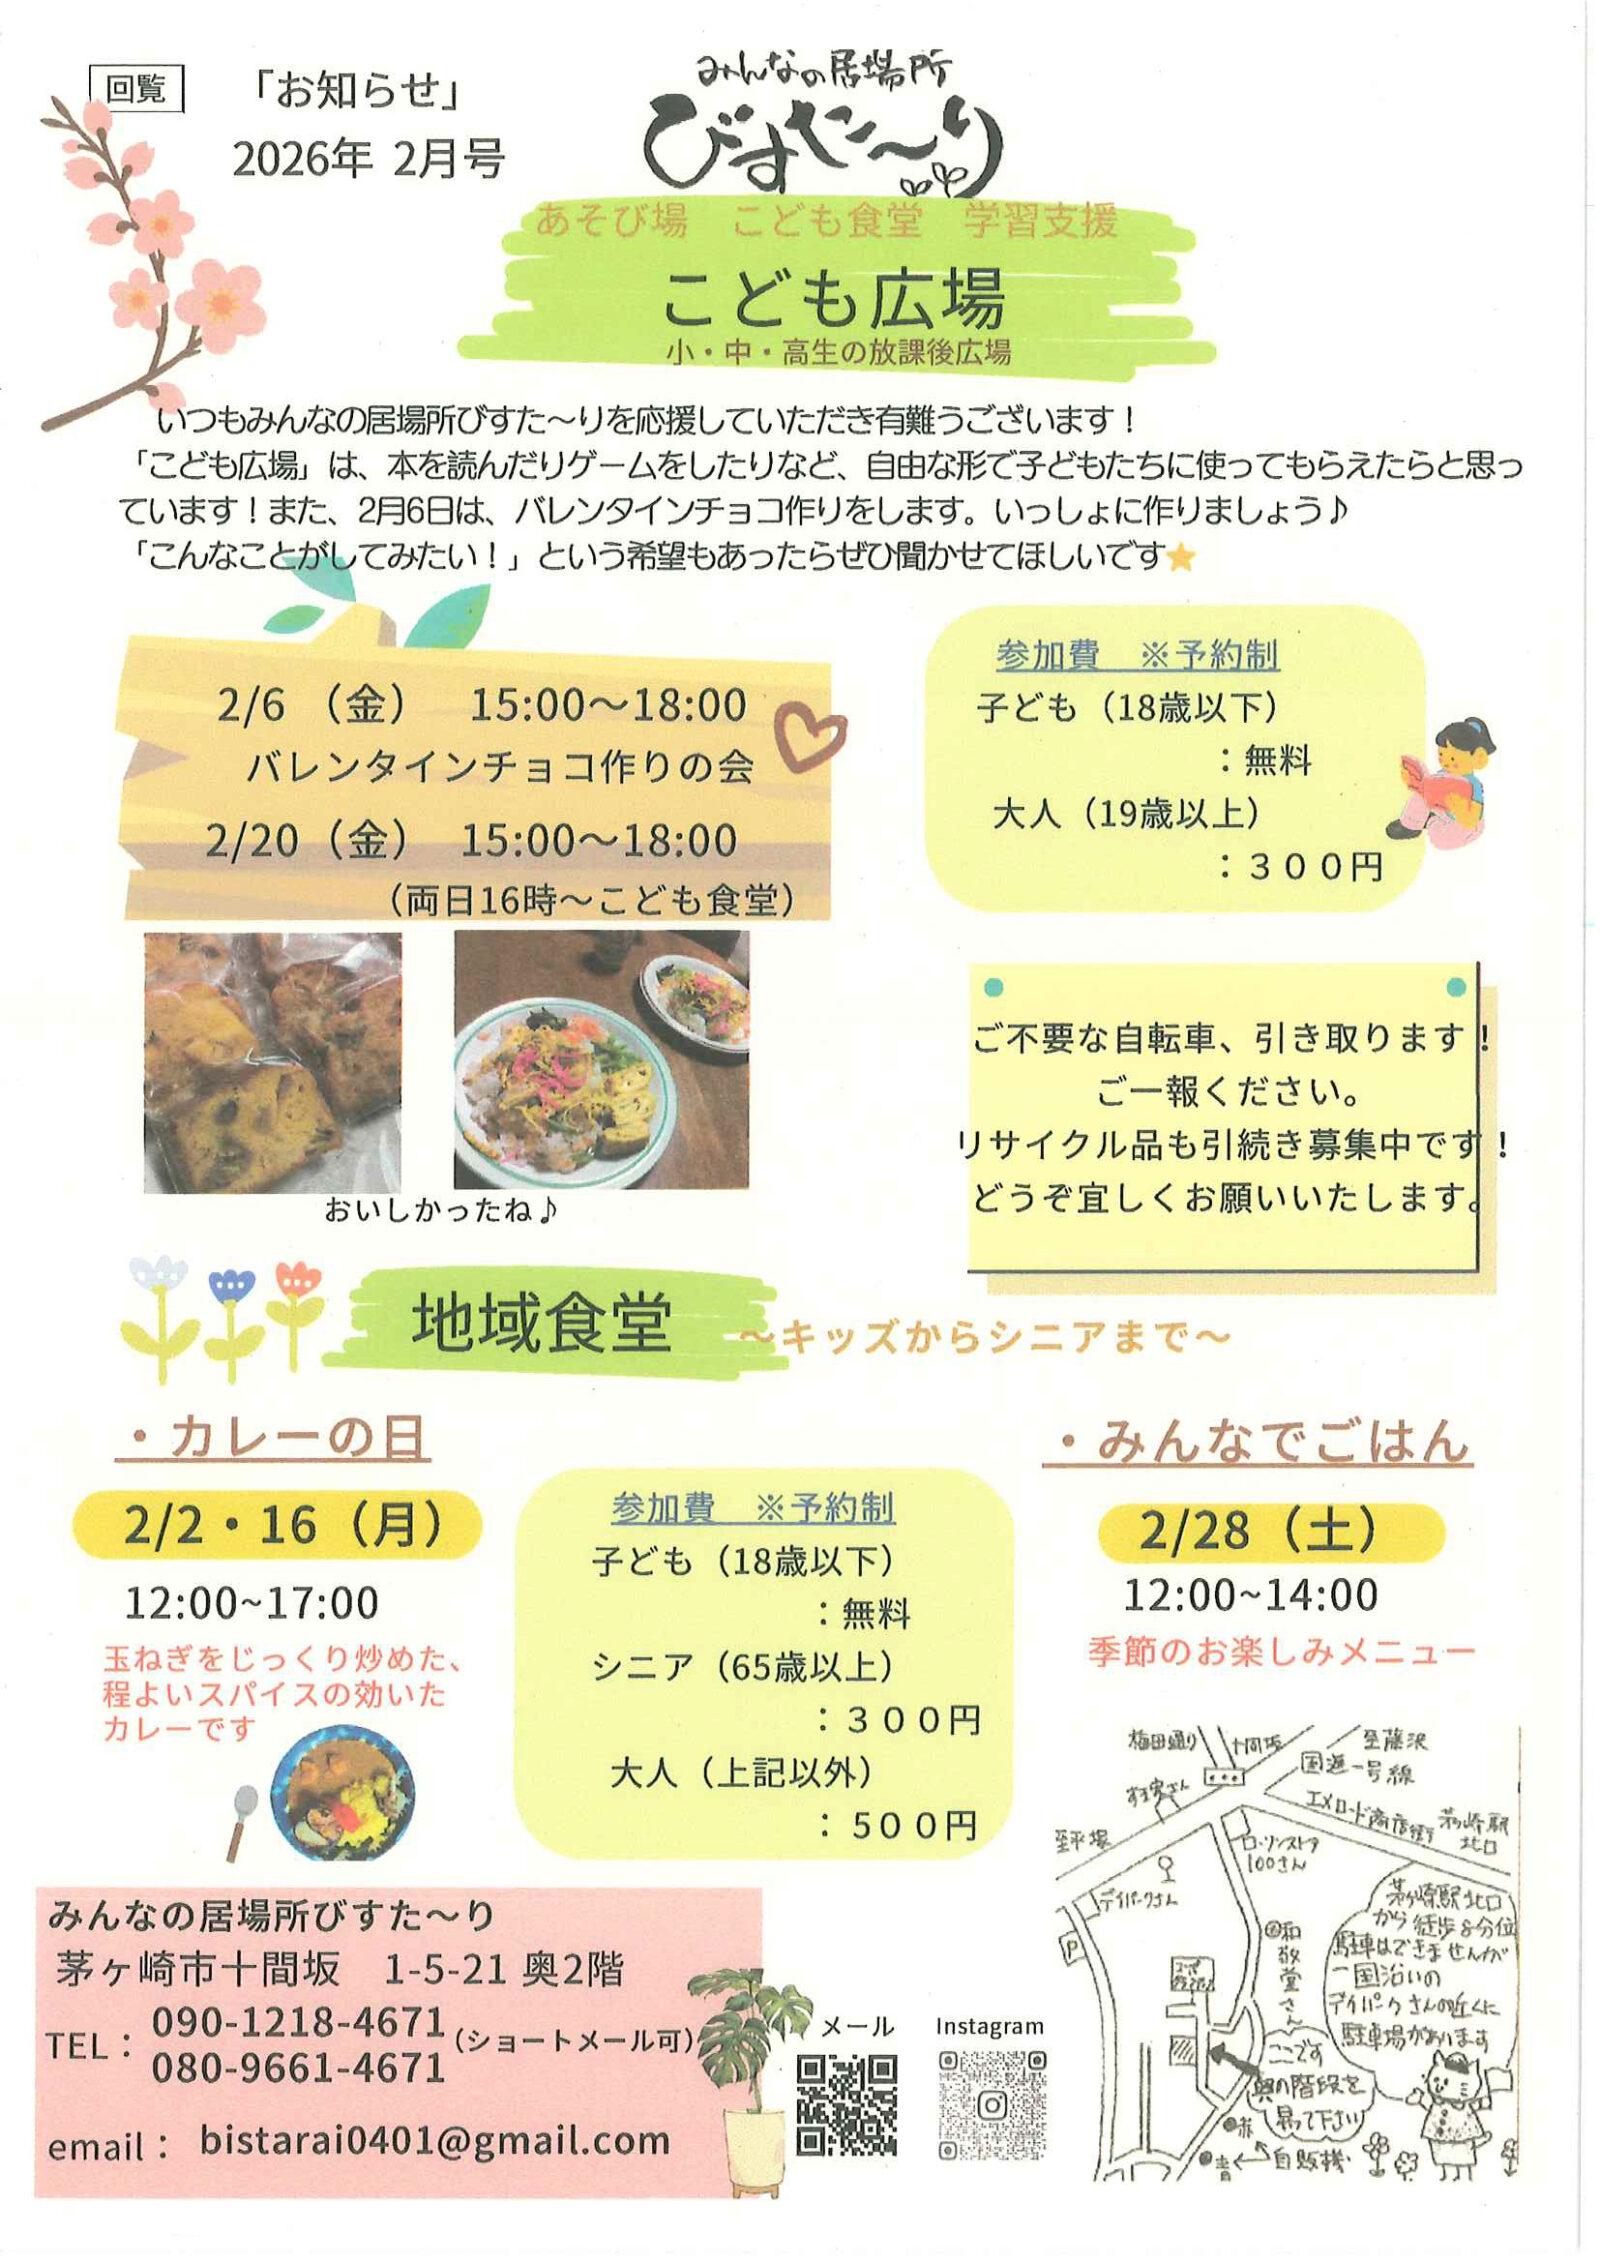 回覧
「お知らせ」
2026年 2月号
みんなの居場所
びすた～り
あそび場　こども食堂　学習支援
こども広場
小・中・高生の放課後広場
いつもみんなの居場所びすた～りを応援していただき有難うございます！
「こども広場」は、本を読んだりゲームをしたりなど、自由な形で子どもたちに使ってもらえたらと思っ
ています！また、2月6日は、バレンタインチョコ作りをします。いっしょに作りましょう♪
「こんなことがしてみたい！」という希望もあったらぜひ聞かせてほしいです⭐
2/6 （金）　15:00～18:00
バレンタインチョコ作りの会
2/20（金）　15:00～18:00
（両日16時～こども食堂）
参加費　※予約制
子ども（18歳以下）
：無料
大人（19歳以上）
：３００円
おいしかったね♪
ご不要な自転車、引き取ります！
ご一報ください。
リサイクル品も引続き募集中です！
どうぞ宜しくお願いいたします。
地域食堂
～キッズからシニアまで～
・カレーの日
2/2・16（月）
12:00~17:00
玉ねぎをじっくり炒めた、
程よいスパイスの効いた
カレーです
参加費　※予約制
子ども（18歳以下）
：無料
シニア（65歳以上）
：３００円
大人（上記以外）
：５００円
・みんなでごはん
2/28（土）
12:00~14:00
季節のお楽しみメニュー
梅田通り
十間坂
至藤沢
国道一号線
すき家さん
エメロード商店街
茅ヶ崎駅
北口
至平塚
ローソンストア
100さん
デイパークさん
P
和敬堂さん
茅ヶ崎駅北口
から徒歩8分位
駐車はできませんが
一国沿いの
デイパークさんの近くに
駐車場があります
ここです
奥の階段を
昇って下さい
赤
青
自販機
みんなの居場所びすた～り
茅ヶ崎市十間坂　1-5-21 奥2階
TEL：
090-1218-4671
080-9661-4671
（ショートメール可）
email： bistarai0401@gmail.com
メール
Instagram